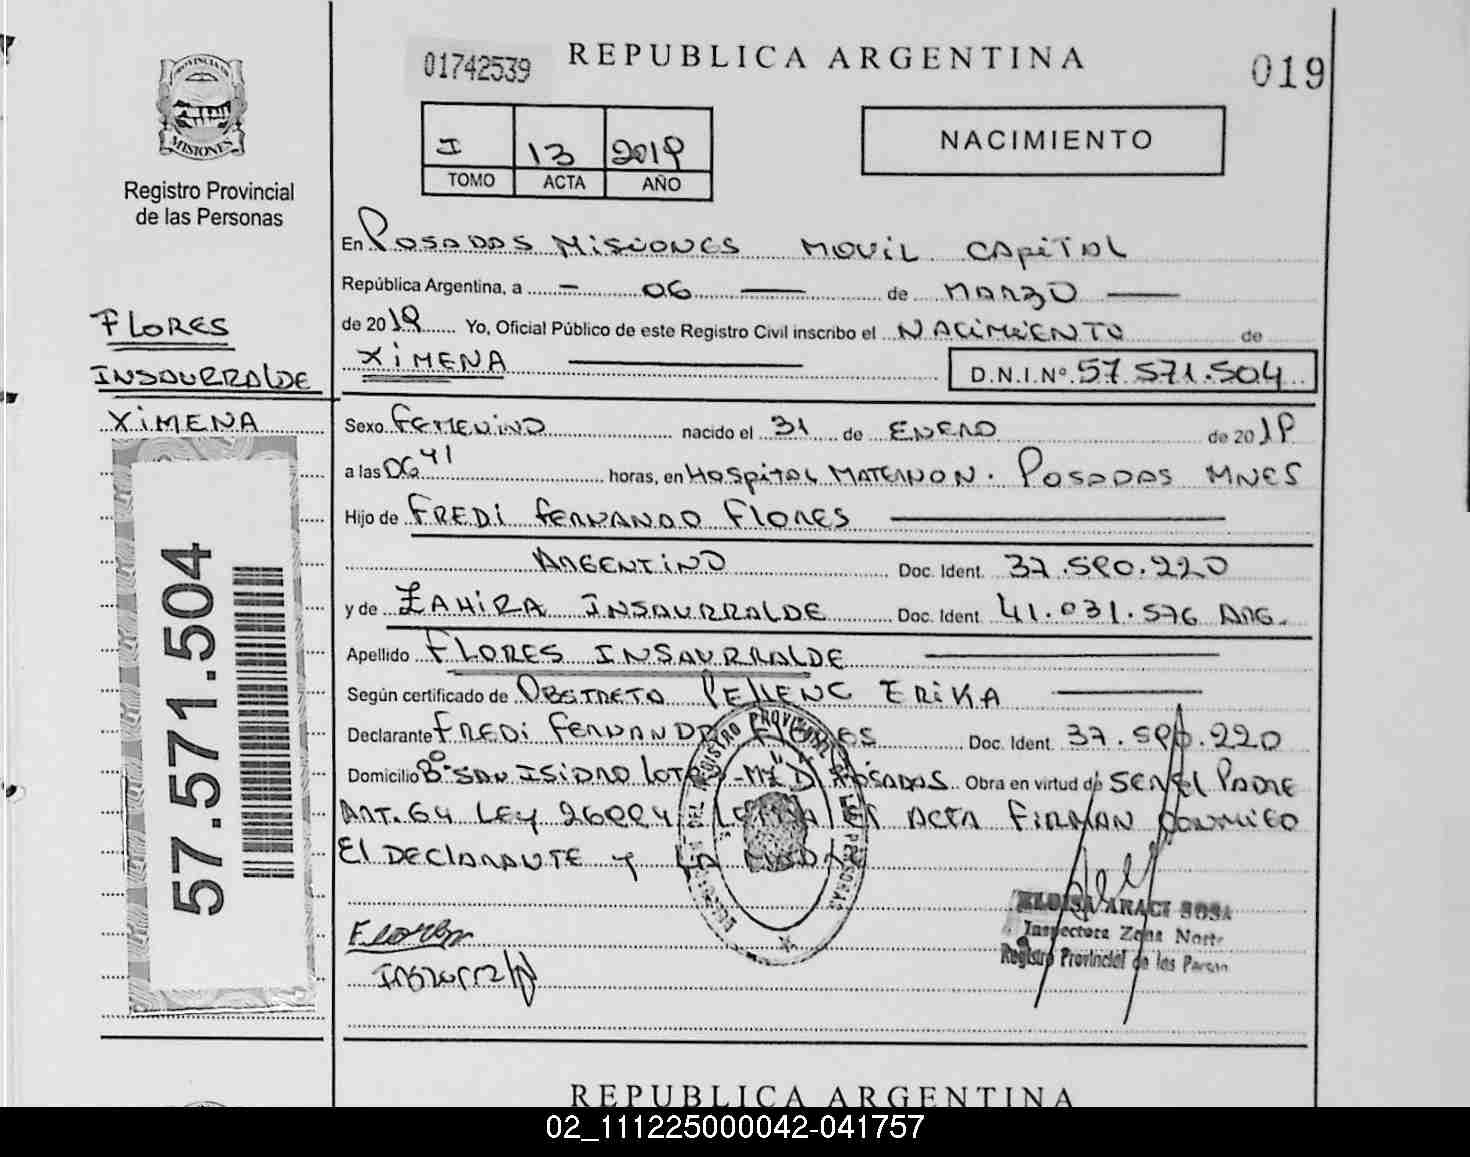 01742539
REPUBLICA ARGENTINA
019
PROVINCIA DE
MISIONES
Registro Provincial
de las Personas
I 13 2019
TOMO ACTA AÑO
NACIMIENTO
En POSADAS MISIONES MOVIL CAPITAL
República Argentina, a 06 de MARZO
de 2019 Yo, Oficial Público de este Registro Civil inscribo el NACIMIENTO de
XIMENA
D.N.I.Nº 57.571.504
FLORES
INSAURRALDE
XIMENA
57.571.504
Sexo FEMENINO nacido el 31 de ENERO de 2019
a las 06 41 horas, en HOSPITAL MATERNON. POSADAS MNES
Hijo de FREDI FERNANDO FLORES
ARGENTINO Doc. Ident. 37.590.220
y de ZAHIRA INSAURRALDE Doc. Ident. 41.031.576 ARG.
Apellido FLORES INSAURRALDE
Según certificado de OBSTRETA PELLENC ERIKA
Declarante FREDI FERNANDO FLORES Doc. Ident. 37.590.220
Domicilio Bº SAN ISIDRO POSADAS Obra en virtud de SER EL PADRE
ART. 64 LEY 26994 ACTA FIRMAN CONMIGO
El DECLARANTE y LA MADRE
Flores
ELOISA ARACI SOSA
Inspectora Zona Norte
Registro Provincial de las Person
REPUBLICA ARGENTINA
02_111225000042-041757